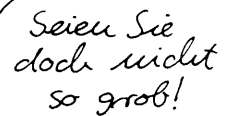 Seien Sie
doch nicht
so grob!